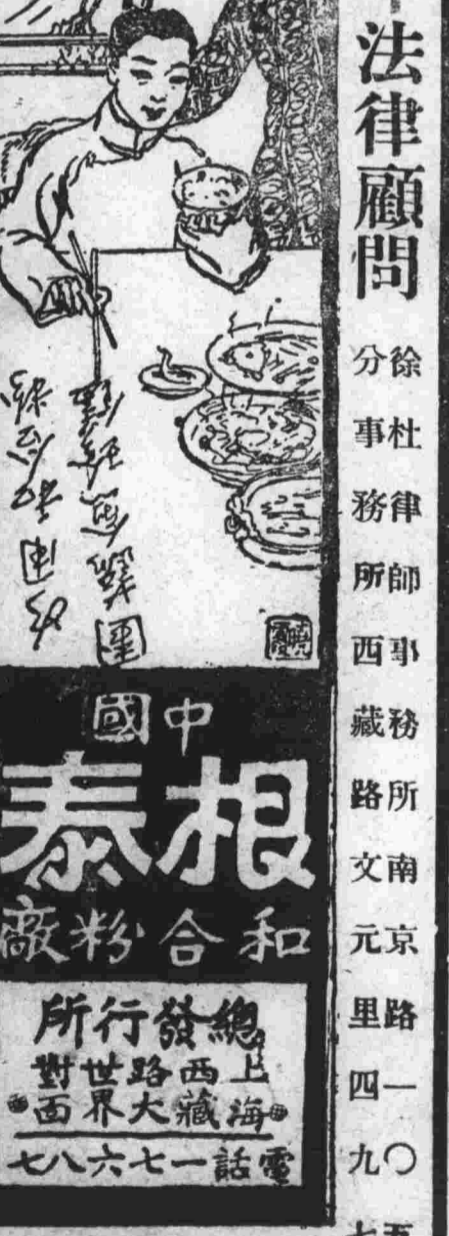 法律顧問
徐杜律師事務所南京路一〇
分事務所西藏路文元里四九
中國
根泰
和合粉廠
總發行所
上海西藏路大世界對面
電話一七六八七